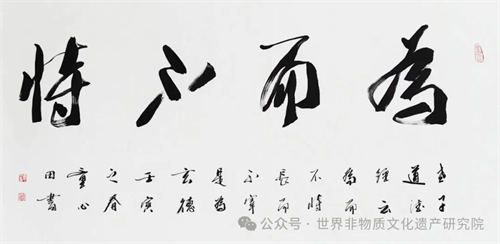 為而不恃
老子
道德
經云
為而
不恃
長而
不宰
是為
玄德
壬寅
之春
童心
田書
公众号 · 世界非物质文化遗产研究院